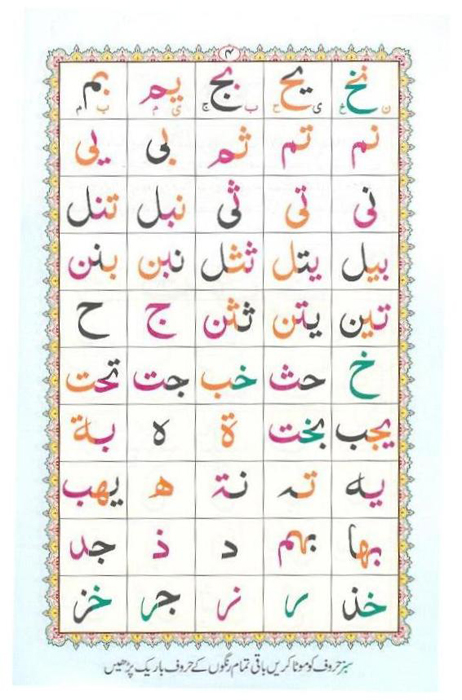 ۴
نخ یح بج یم بم
ن خ ی ح ب ج ی م ب م
نم تم ثم بی یی
نی تی ثی نبل تنل
بیل یتل تثل نبن بنن
تین یتن ثثن ج ح
خ حث خب جت تحت
یجب بخت ة ه بة
یه ته نة ھ یهب
بها بهم د ذ جد
خذ ر نر جر خز
سبز حروف کو موٹا کریں باقی تمام رنگوں کے حروف باریک پڑھیں